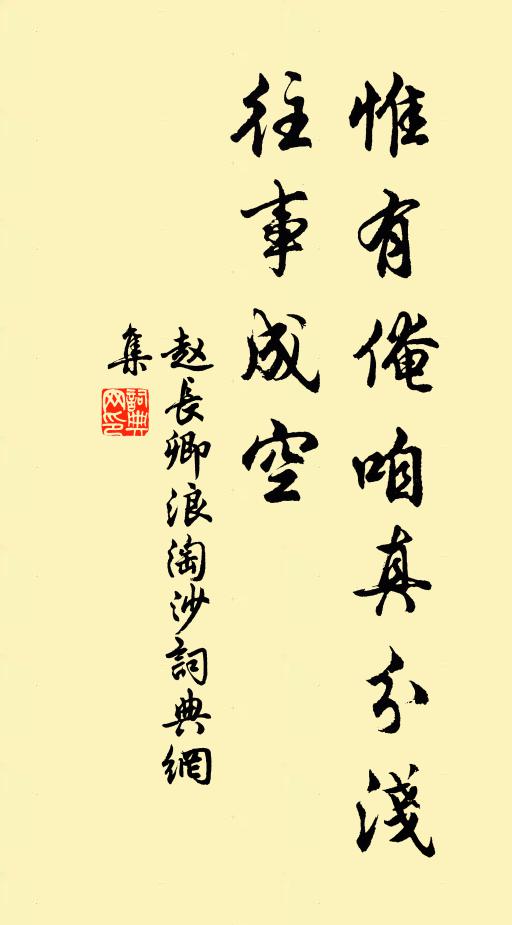 惟有俺咱真分淺
往事成空
赵長卿浪淘沙詞典網
集
詞典
网印